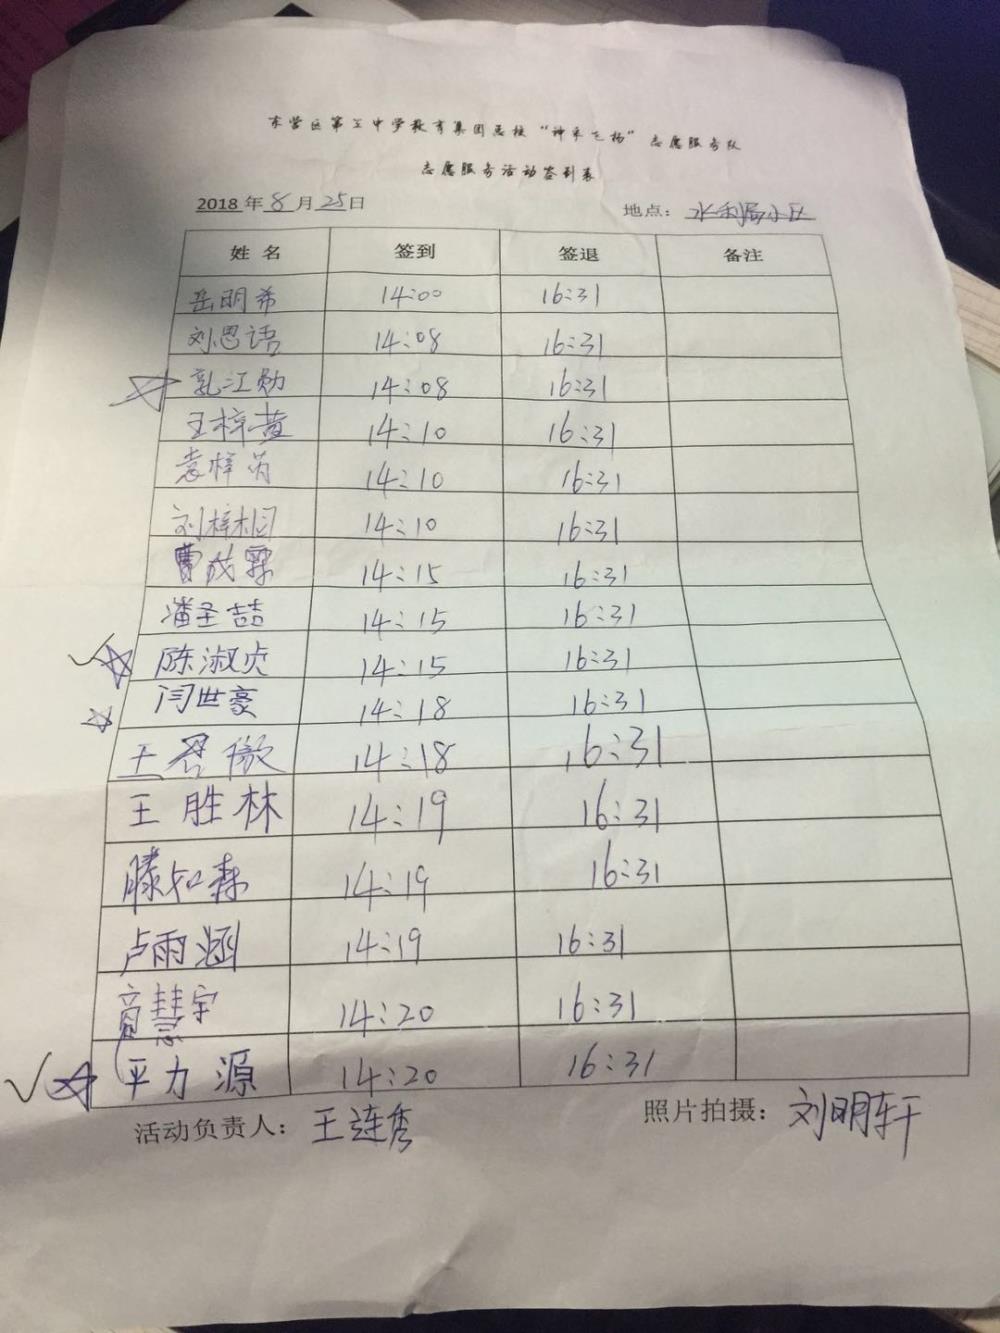 东营区第三中学教育集团总校“神采飞扬”志愿服务队
志愿服务活动签到表
2018年8月25日 地点：水利局小区
姓名 签到 签退 备注
岳明希 14:00 16:31
刘思语 14:08 16:31
郭江勋 14:08 16:31
王梓萱 14:10 16:31
袁梓芮 14:10 16:31
刘梓桐 14:10 16:31
曹成霖 14:15 16:31
潘圣喆 14:15 16:31
陈淑贞 14:15 16:31
闫世豪 14:18 16:31
王君傲 14:18 16:31
王胜林 14:19 16:31
滕知森 14:19 16:31
卢雨涵 14:19 16:31
慧宇 14:20 16:31
平力源 14:20 16:31
活动负责人：王连秀 照片拍摄：刘明轩